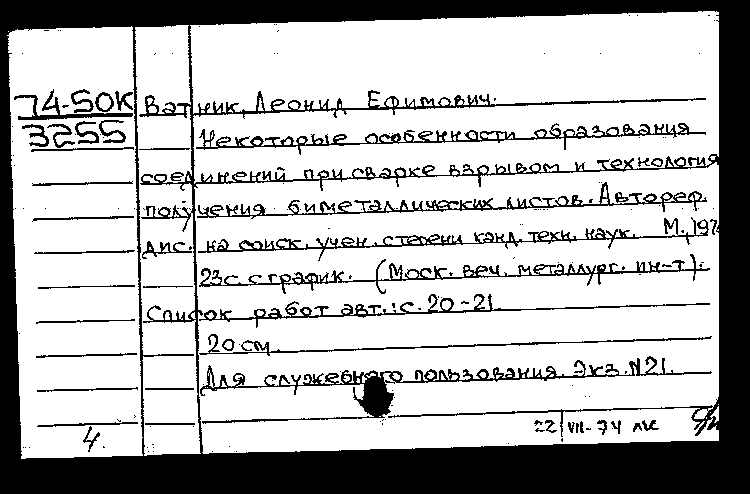 74-50К Ватник, Леонид Ефимович.
3255 Некоторые особенности образования
соединений при сварке взрывом и технология
получения биметаллических листов. Автореф.
дис. на соиск. учен. степени канд. техн. наук. М., 197
23с. с график. (Моск. веч. металлург. ин-т).
Список работ авт.: с. 20-21.
20 см.
Для служебного пользования. Экз. N21.
4. 22/VII-74